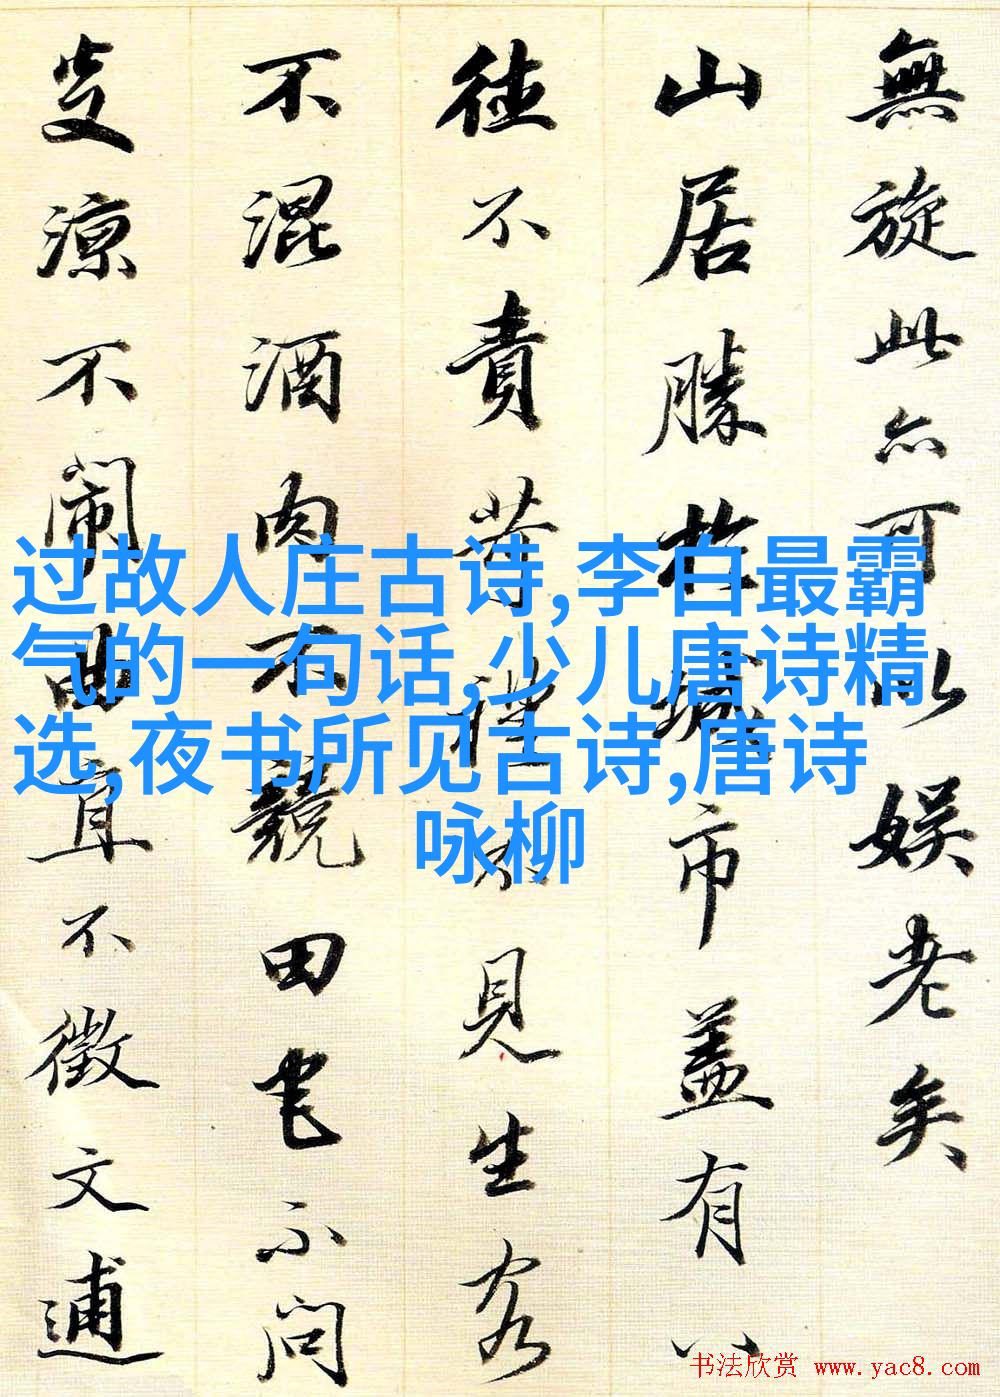 無旋此亦可以娱老矣
山居勝於城市蓋有八
德不責苛禮不見生客
不混酒肉不競田宅不問
炎涼不闹曲直不徵文逋
过故人庄古诗,李白最霸
气的一句话,少儿唐诗精
选,夜书所见古诗,唐诗
咏柳
书法欣赏 www.yac8.com